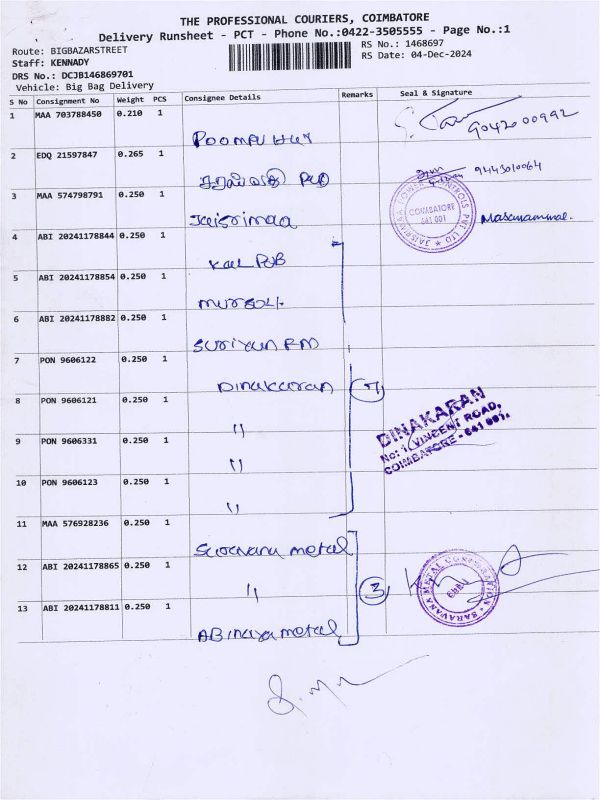 THE PROFESSIONAL COURIERS, COIMBATORE
Delivery Runsheet - PCT - Phone No.:0422-3505555 - Page No.:1
Route: BIGBAZARSTREET RS No.: 1468697
Staff: KENNADY RS Date: 04-Dec-2024
DRS No.: DCJB146869701
Vehicle: Big Bag Delivery
S No Consignment No Weight PCS Consignee Details Remarks Seal & Signature
1 MAA 703788450 0.210 1
9042000992
2 EDQ 21597847 0.265 1
9443010064
3 MAA 574798791 0.250 1 Jaisrimaa
JAISRIMAA POWER CONTROLS PVT LTD
COIMBATORE
641 001
Masanammal.
4 ABI 20241178844 0.250 1
5 ABI 20241178854 0.250 1
6 ABI 20241178882 0.250 1
Suriyan FM
7 PON 9606122 0.250 1
Dinakaran 7
8 PON 9606121 0.250 1
"
DINAKARAN
No: 1, VINCENT ROAD,
COIMBATORE - 641 001.
9 PON 9606331 0.250 1
"
10 PON 9606123 0.250 1
"
11 MAA 576928236 0.250 1
metal
12 ABI 20241178865 0.250 1
" 3
SARAVANA METAL CORPORATION
13 ABI 20241178811 0.250 1
ABinaya metal